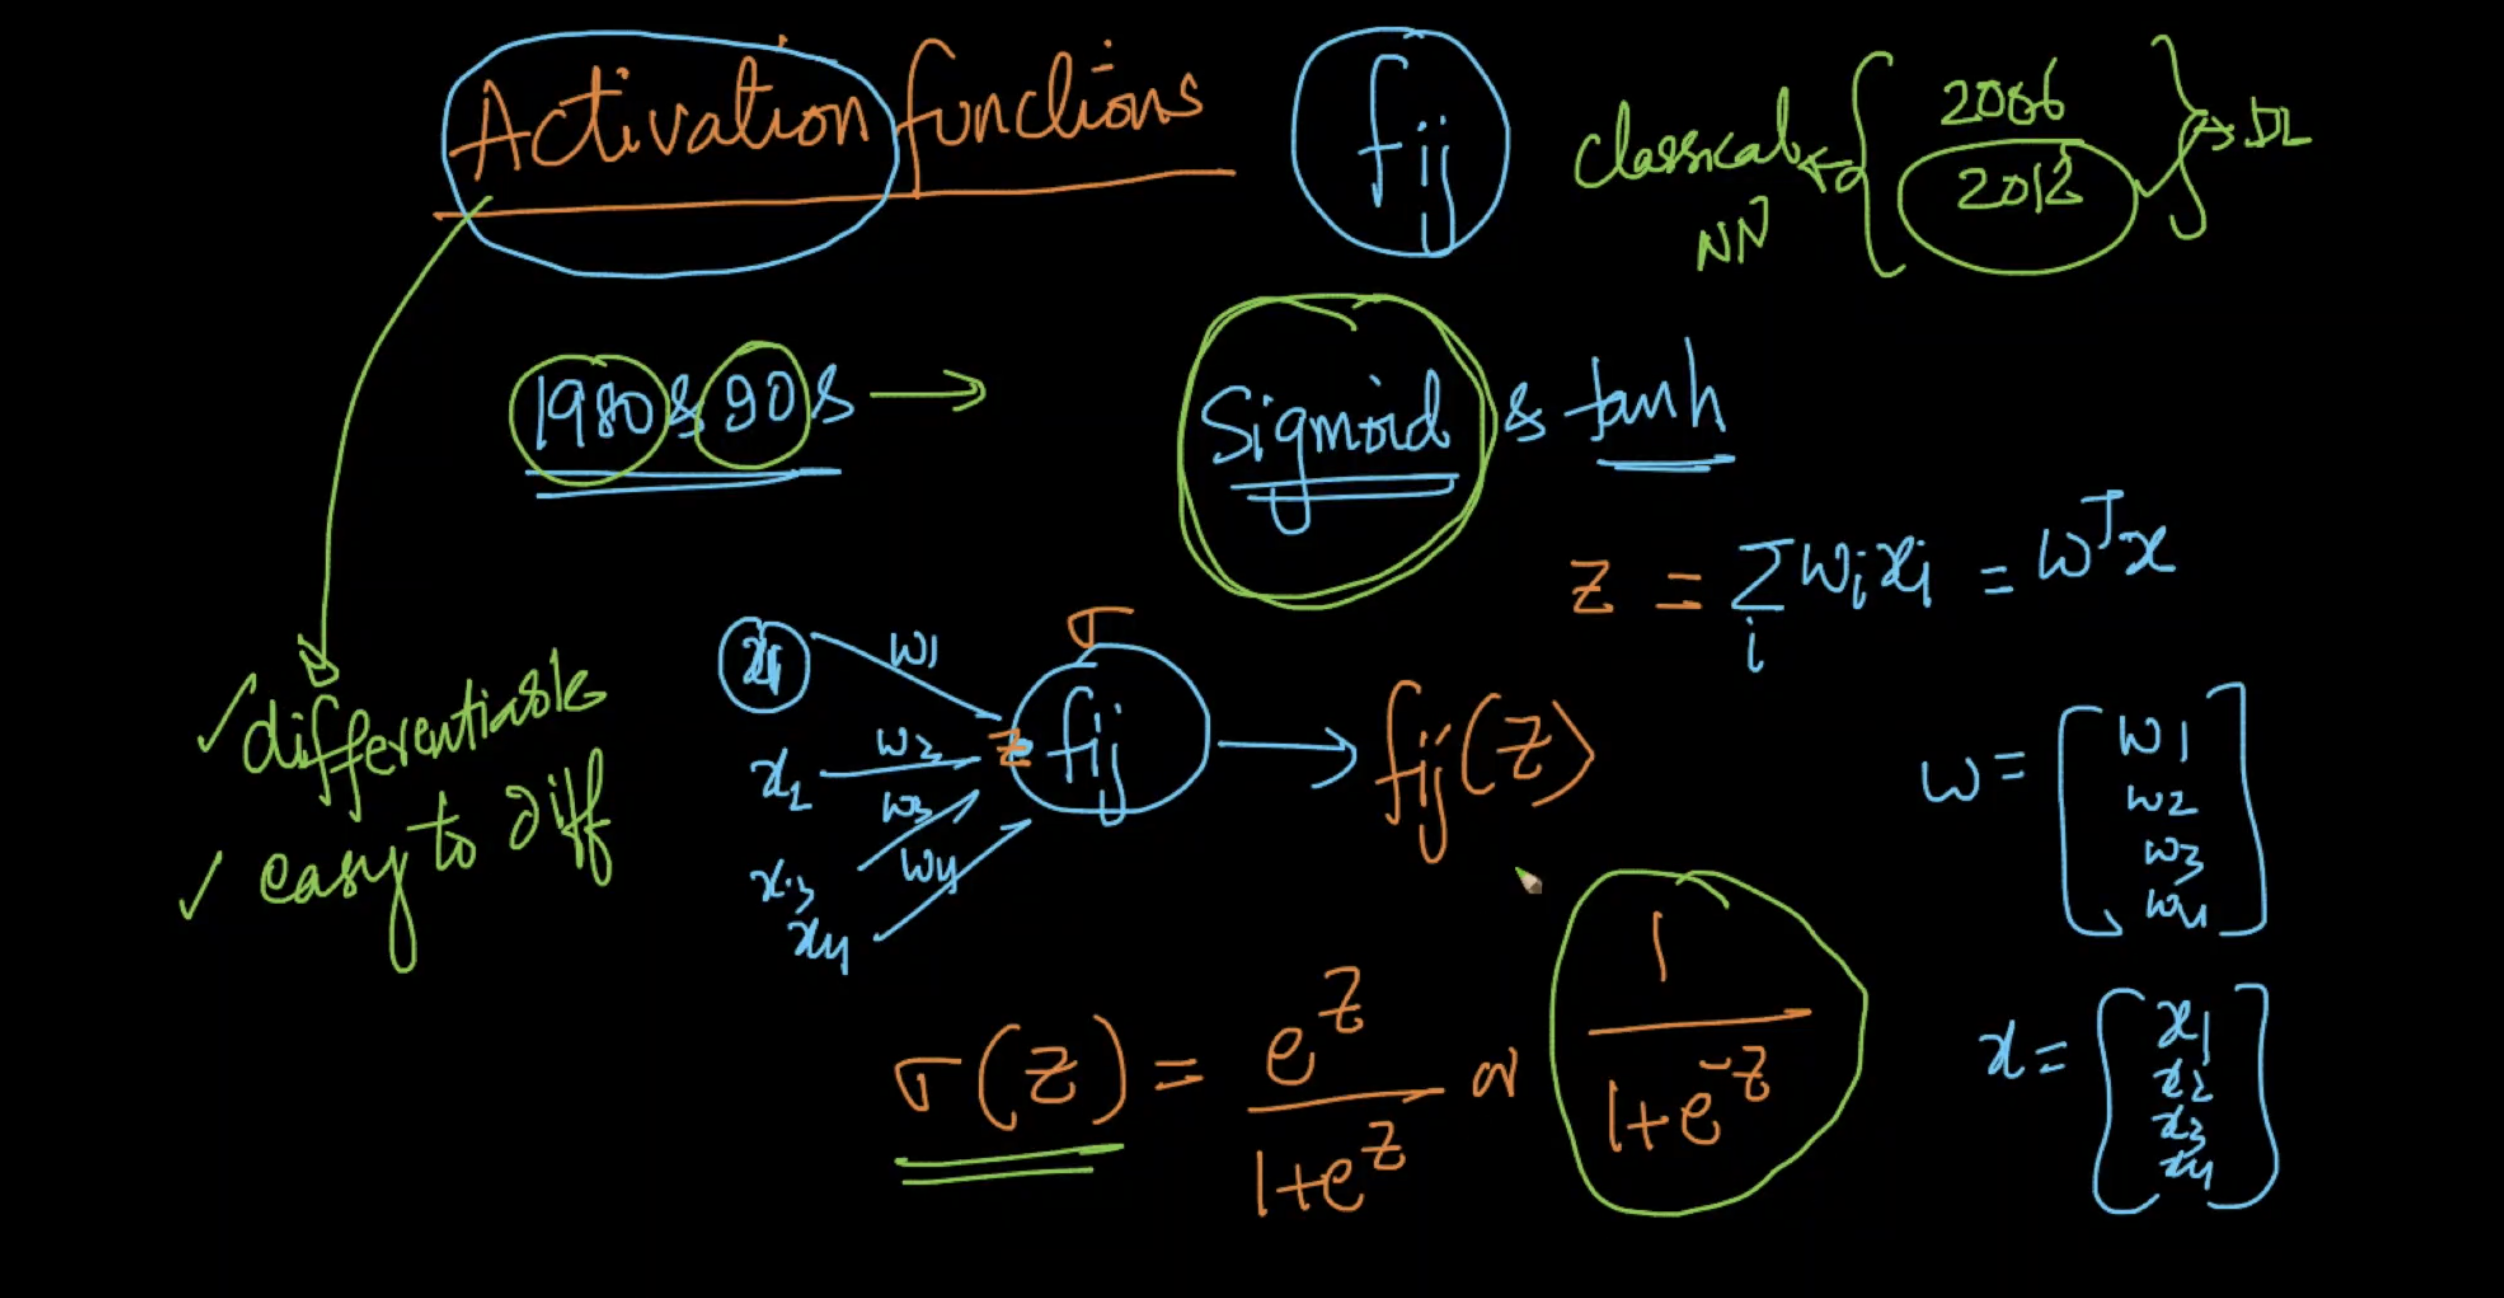 Activation functions
fij
Classical NN ← { 2006 2012 } → DL
1980s & 90s → Sigmoid & tanh
z = ∑ᵢ wᵢxᵢ = wᵀx
✓ differentiable
✓ easy to diff
x1 w1
x2 w2
x3 w3
x4 w4
σ
z fij → fij(z)
w = [w1 w2 w3 w4]
σ(z) = e^z / 1+e^z or 1 / 1+e^-z
x = [x1 x2 x3 x4]